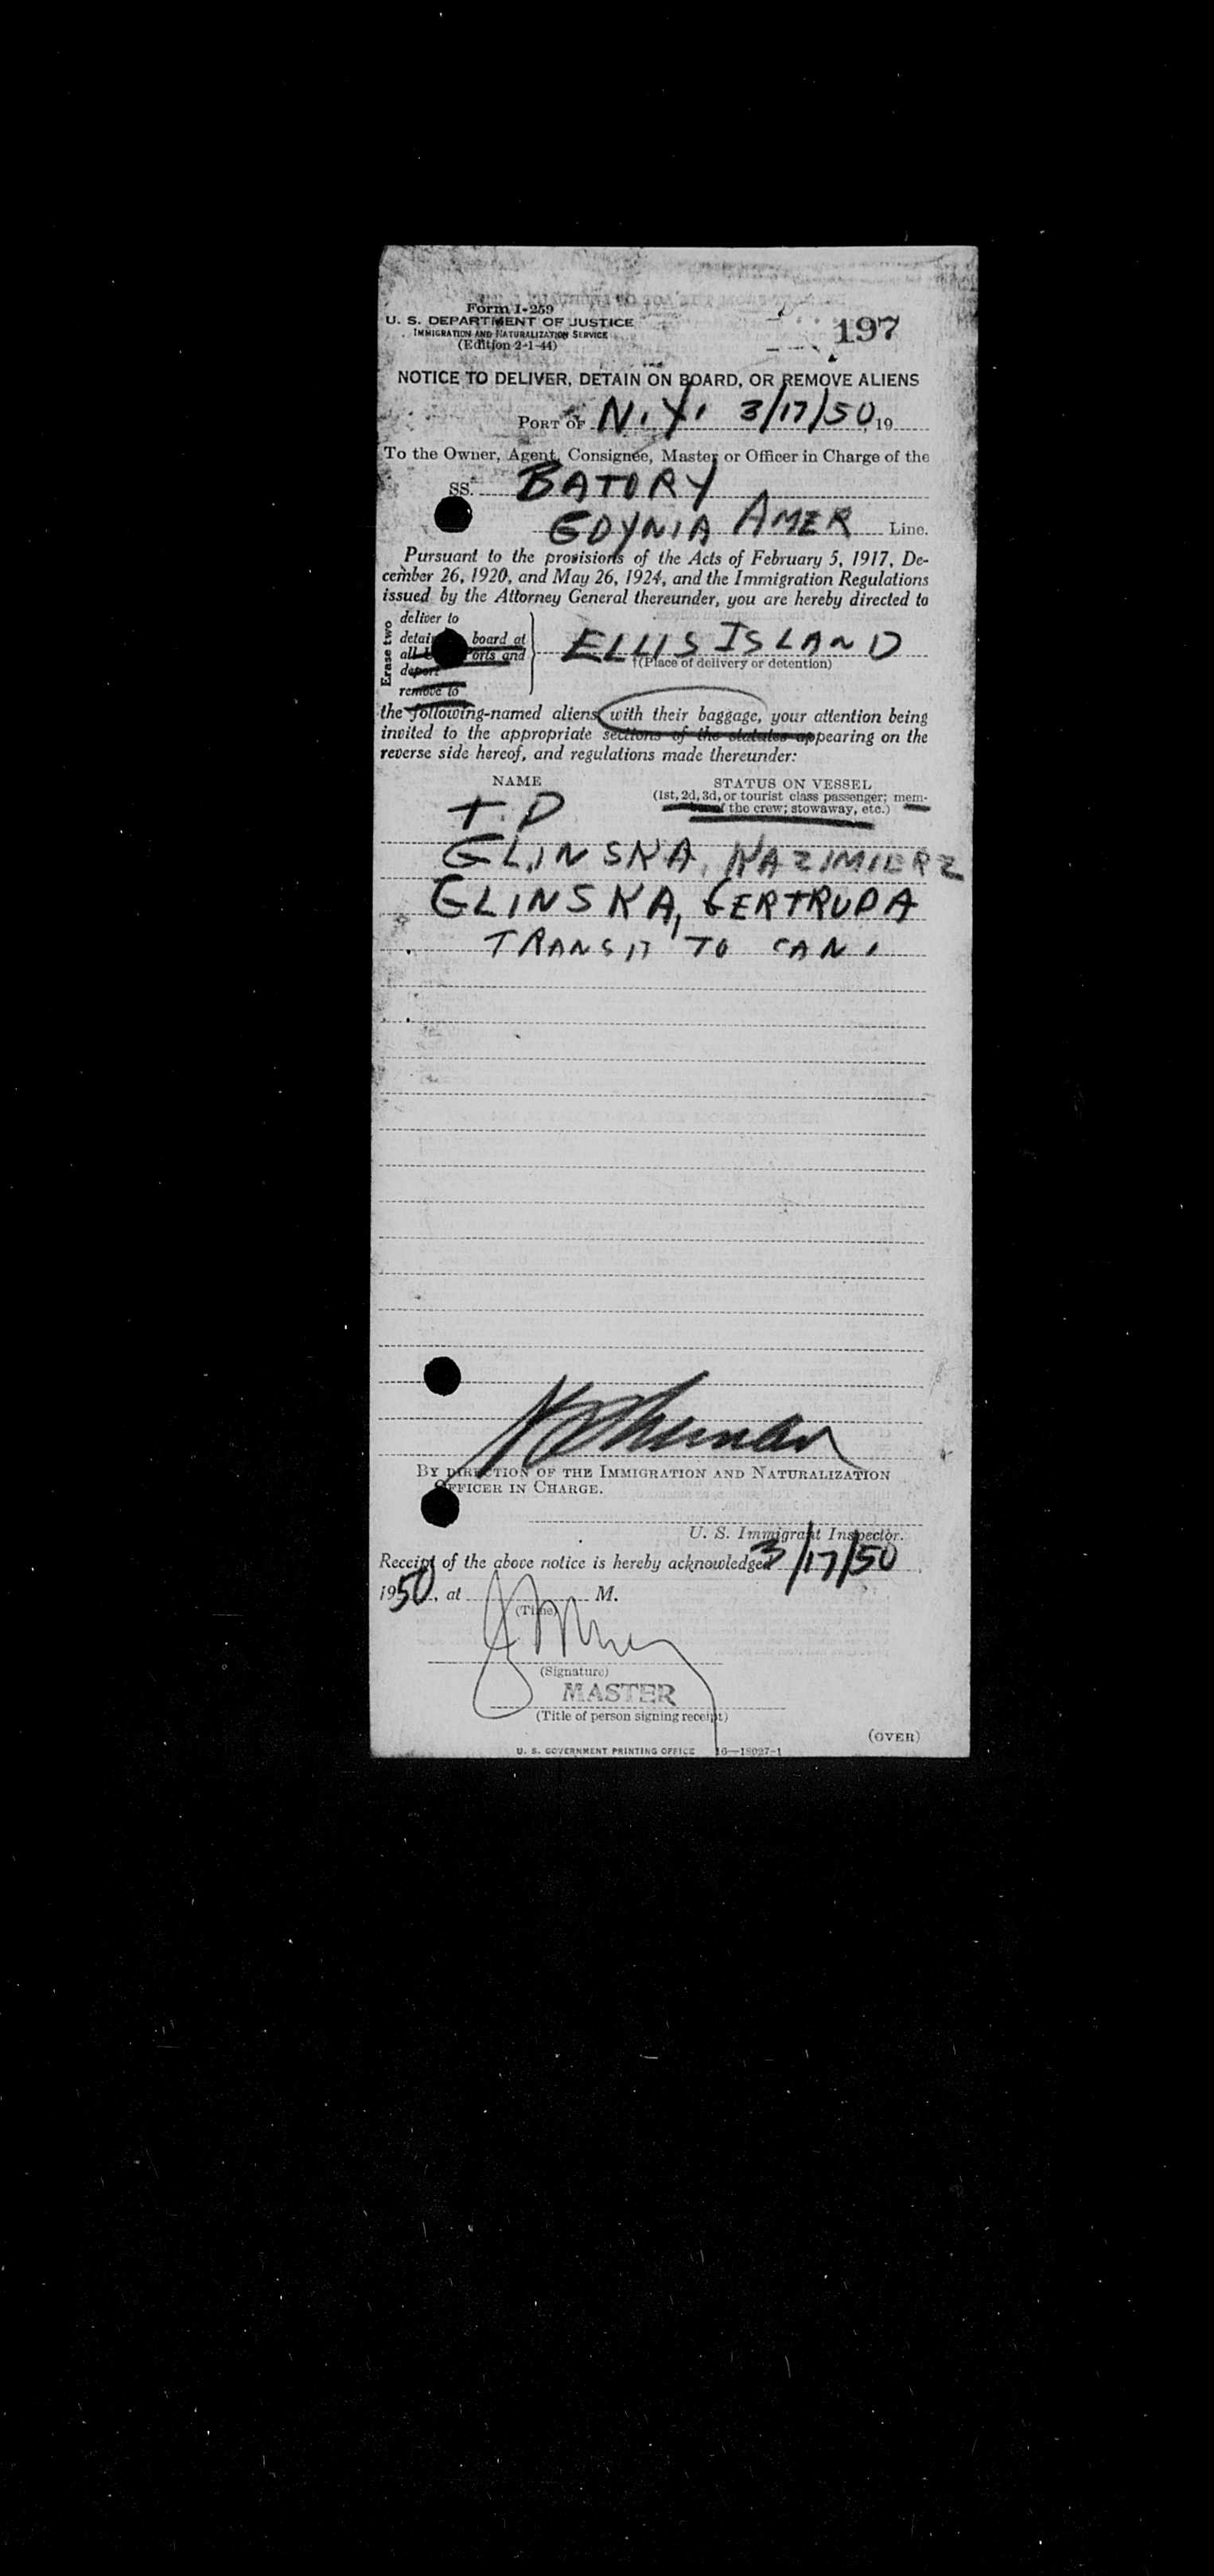 Form I-259
U. S. DEPARTMENT OF JUSTICE
IMMIGRATION AND NATURALIZATION SERVICE
(Edition 2-1-44)
197
NOTICE TO DELIVER, DETAIN ON BOARD, OR REMOVE ALIENS
PORT OF N.Y. 3/17/50, 19
To the Owner, Agent, Consignee, Master or Officer in Charge of the
SS. BATORY
GDYNIA AMER Line.
Pursuant to the provisions of the Acts of February 5, 1917, De-
cember 26, 1920, and May 26, 1924, and the Immigration Regulations
issued by the Attorney General thereunder, you are hereby directed to
Erase two
deliver to
board at
all and
deport
remove to
ELLIS ISLAND
(Place of delivery or detention)
the following-named aliens with their baggage, your attention being
invited to the appropriate sections of the statutes appearing on the
reverse side hereof, and regulations made thereunder:
NAME
STATUS ON VESSEL
(1st, 2d, 3d, or tourist class passenger; mem-
of the crew; stowaway, etc.)
T.D
GLINSKA, KAZIMIERZ
GLINSKA, GERTRUDA
TRANSIT TO CAN.
BY DIRECTION OF THE IMMIGRATION AND NATURALIZATION
OFFICER IN CHARGE.
U. S. Immigrant Inspector.
Receipt of the above notice is hereby acknowledged 3/17/50,
1950, at M.
(Time)
(Signature)
MASTER
(Title of person signing receipt)
(OVER)
U. S. GOVERNMENT PRINTING OFFICE 16—18027-1